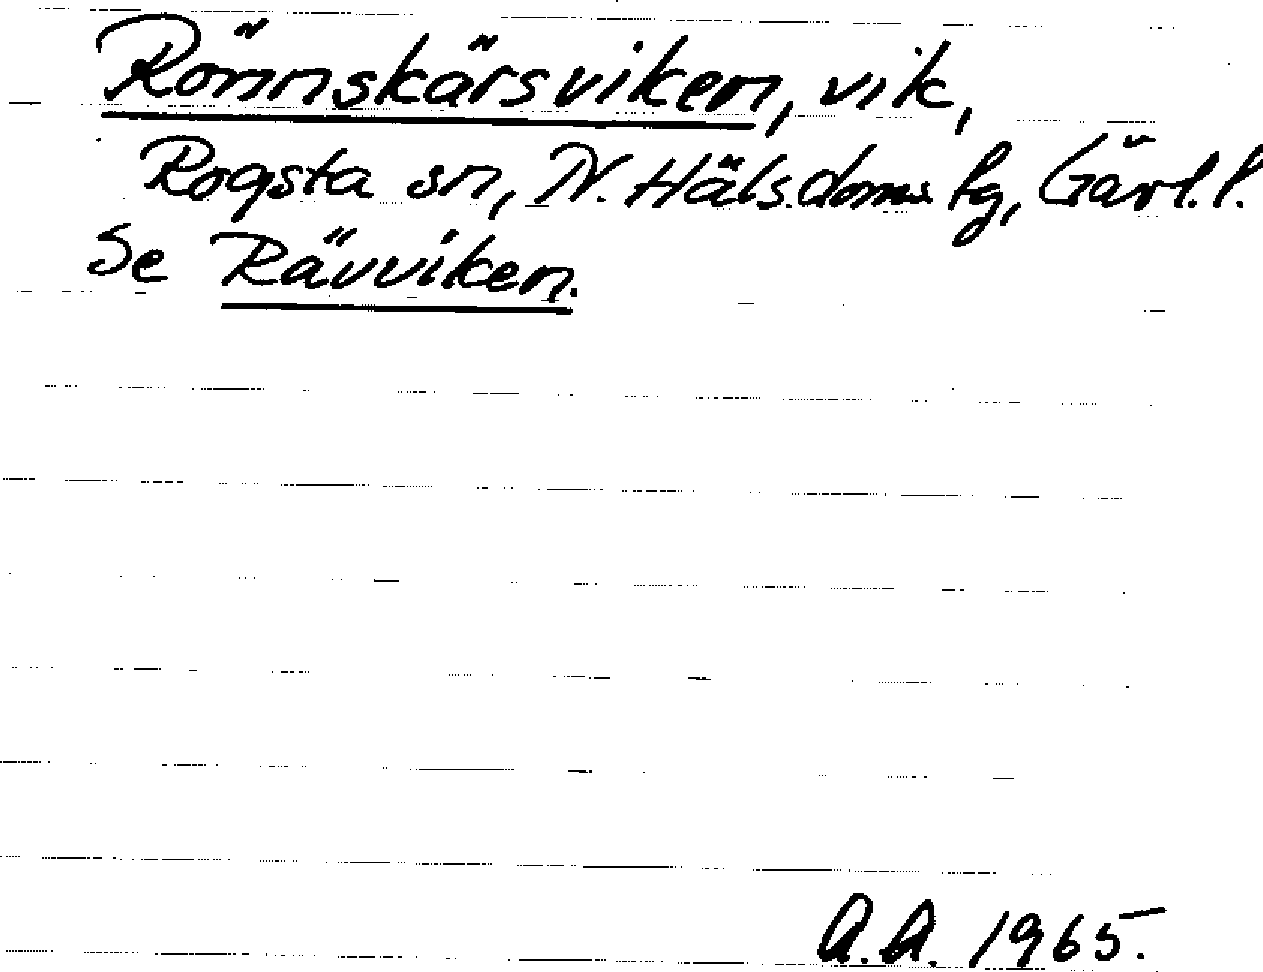 Rönnskärsviken, vik,
Rogsta sn, N. Häls. doms. fg, Gävl. l.
Se Rävviken.
A.A. 1965.